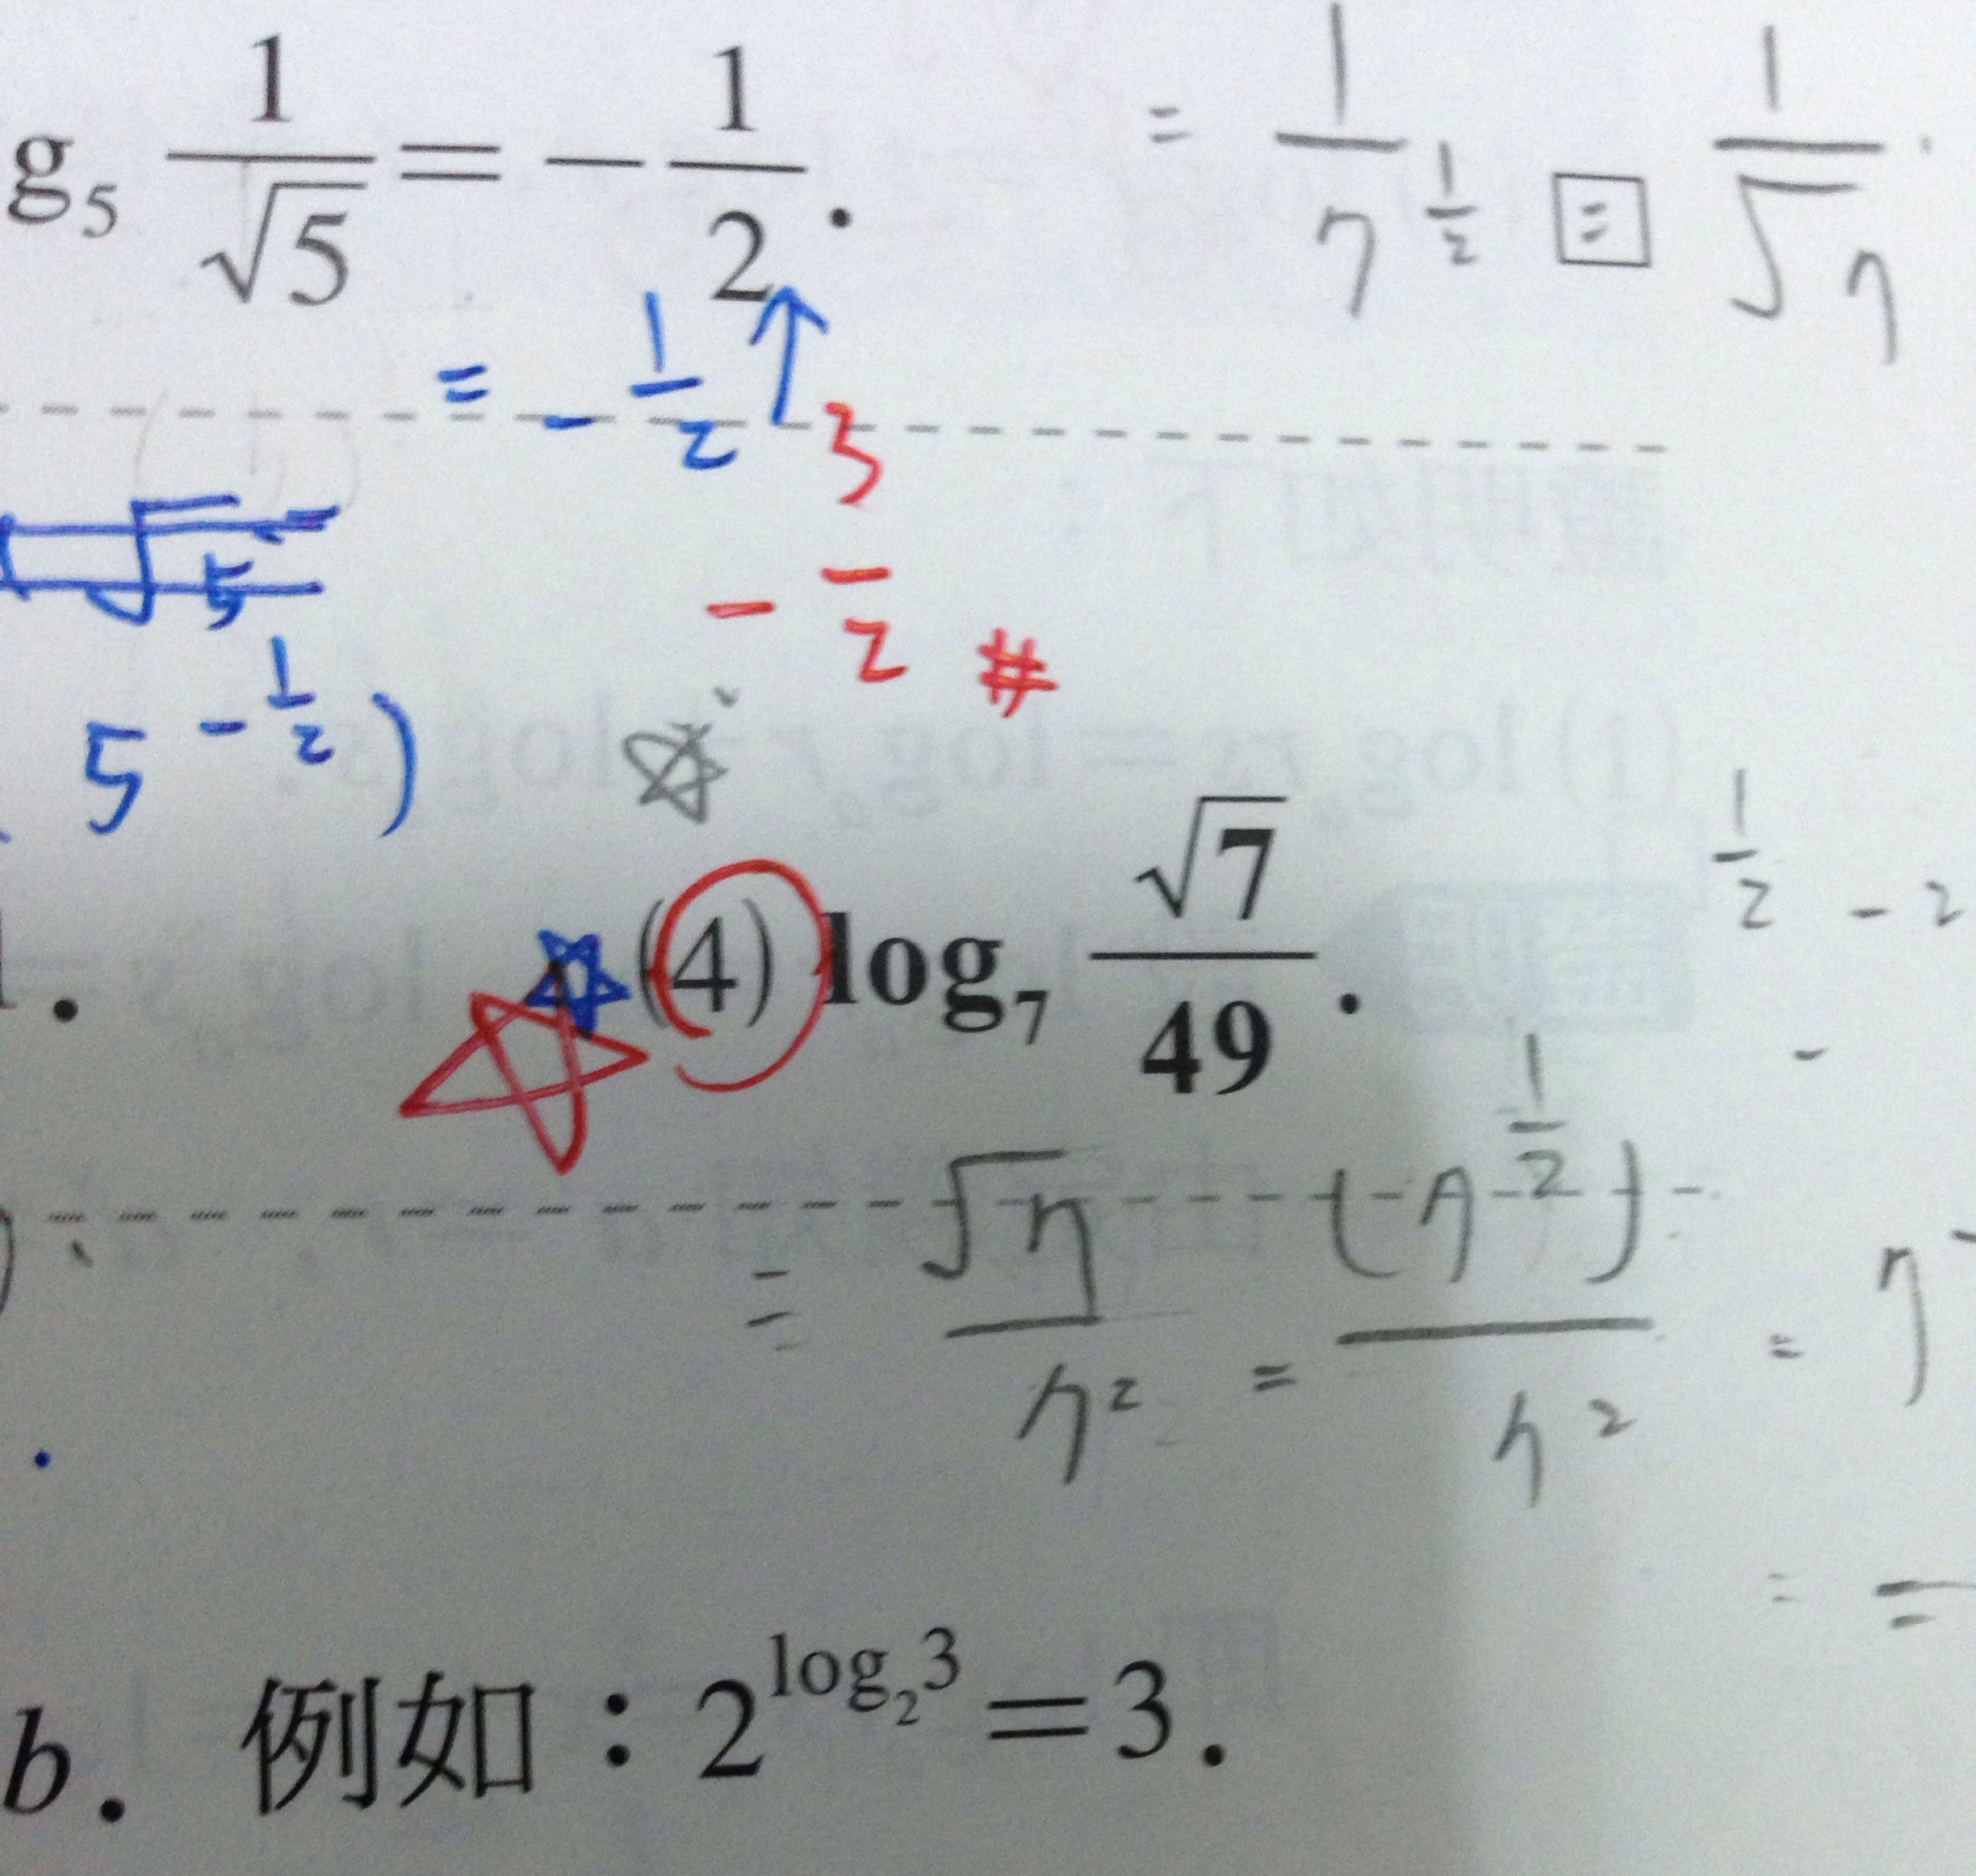 g₅ 1/√5 = -1/2.
= 1/7^(1/2) = 1/√7
= -1/2 ↑
3
√5
-—/2 #
5^(-1/2))
1/2 - 2
(4) log₇ √7/49.
= √7/7² = (7^(1/2))/7² = 7
b. 例如：2^(log₂3) = 3.